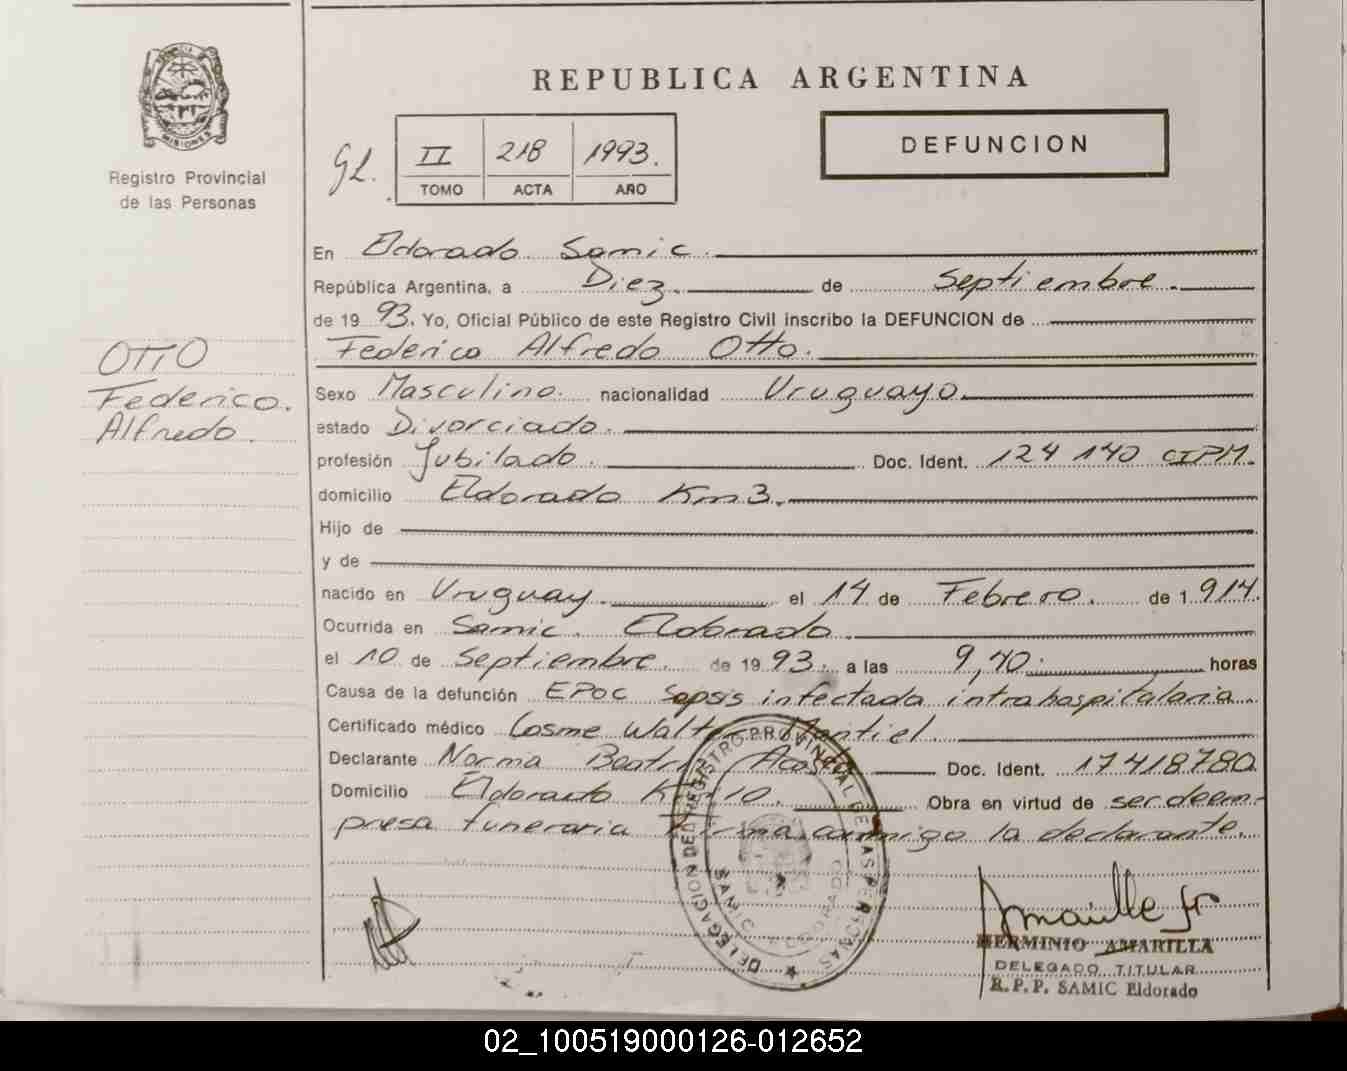 PROVINCIA DE MISIONES
Registro Provincial
de las Personas
REPUBLICA ARGENTINA
GL.
II 218 1993.
TOMO ACTA AÑO
DEFUNCION
En Eldorado Samic.
República Argentina, a Diez. de Septiembre.
de 19 93. Yo, Oficial Público de este Registro Civil inscribo la DEFUNCION de
Federico Alfredo Otto.
OTTO
Federico.
Alfredo.
Sexo Masculino. nacionalidad Uruguayo.
estado Divorciado.
profesión Jubilado. Doc. Ident. 124 140 CIPM.
domicilio Eldorado Km 3.
Hijo de
y de
nacido en Uruguay. el 14 de Febrero. de 1 914.
Ocurrida en Samic. Eldorado.
el 10 de Septiembre. de 19 93. a las 9,40. horas
Causa de la defunción EPOC Sepsis infectada intrahospitalaria
Certificado médico Cosme Walter Montiel.
Declarante Norma Beatriz Acosta Doc. Ident. 17418780
Domicilio Eldorado Km 10. Obra en virtud de ser de em-
presa funeraria Firma conmigo la declarante.
DELEGACION DEL REGISTRO PROVINCIAL DE LAS PERSONAS
SAMIC ELDORADO
HERMINIO AMARILLA
DELEGADO TITULAR
R.P.P. SAMIC Eldorado
02_100519000126-012652